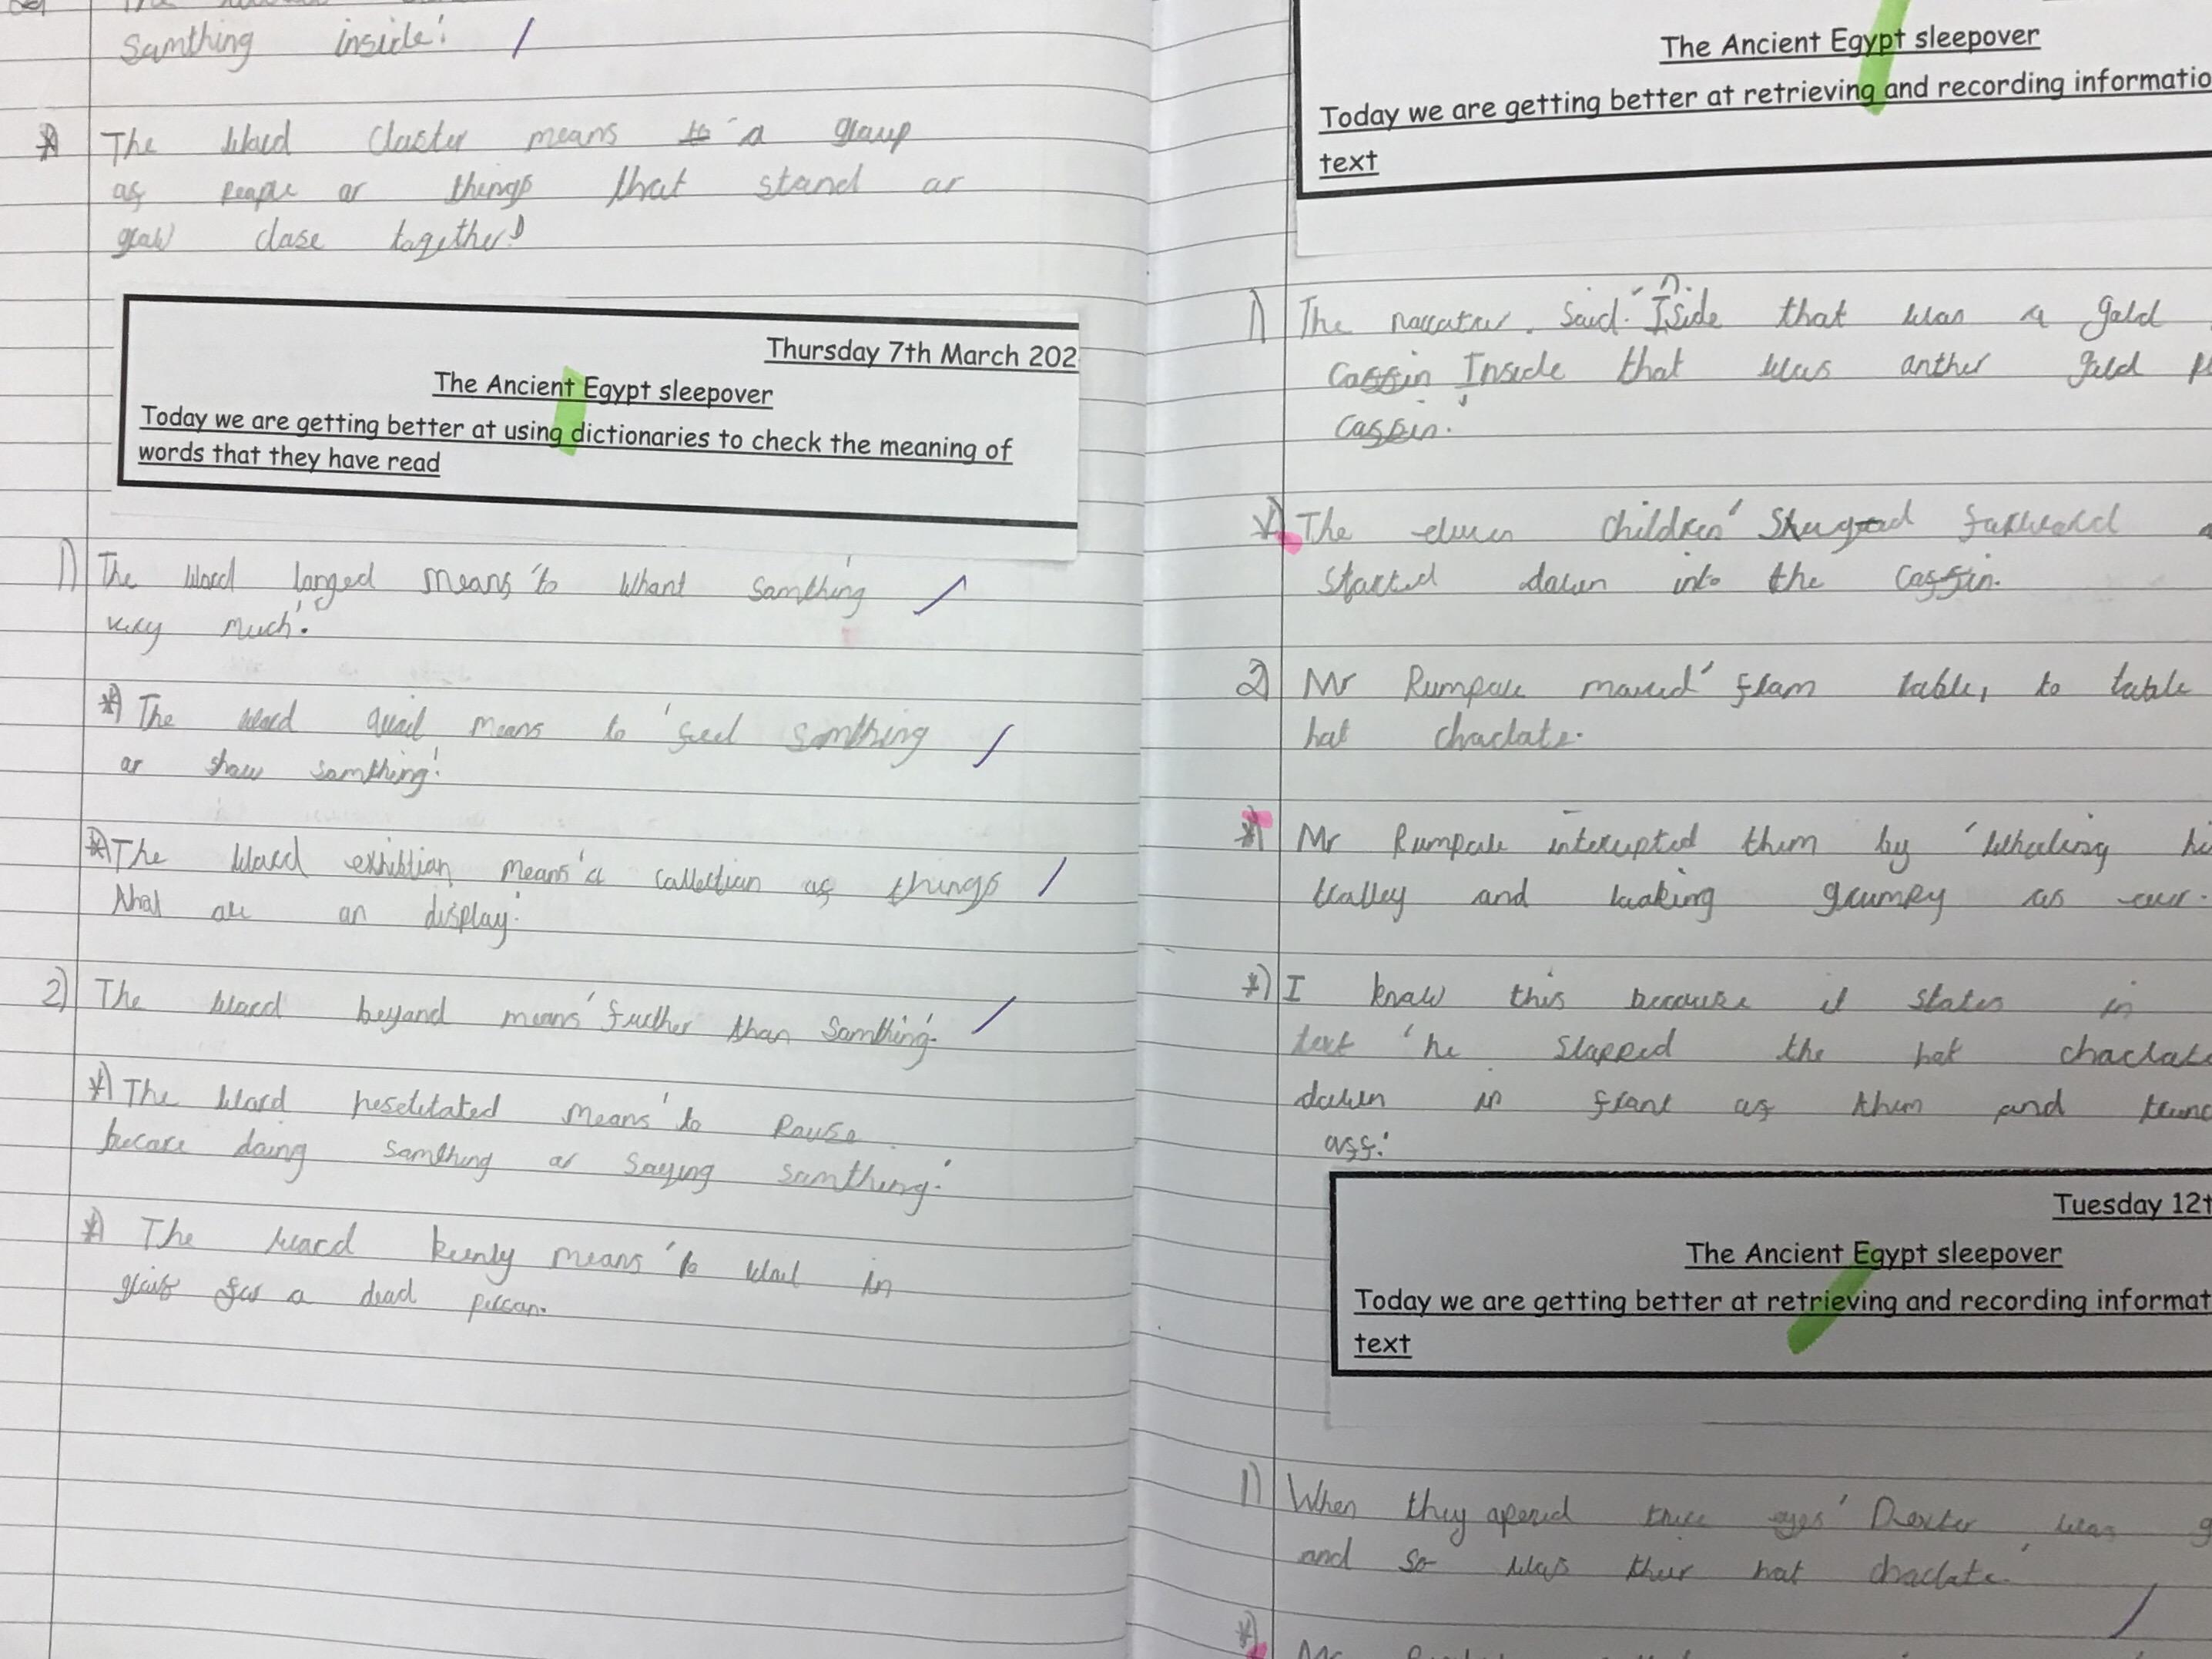 Samthing inside'.
*) The Word Claster means to 'a graup
as peaple ar things that stand ar
graw clase tagether'
Thursday 7th March 202
The Ancient Egypt sleepover
Today we are getting better at using dictionaries to check the meaning of
words that they have read
1) The Word langed means 'to Whant Samthing
very much'.
*) The Word quail means to 'feel Samthing
ar shaw samthing'.
*) The Ward exhibtian means 'a callectian af things
that are an display'
2) The Ward beyand means 'further than Samthing'.
*) The Ward hesetitated means 'to Pause
becare daing samthing ar saying samthing'.
*) The Ward keenly means 'to Wail in
for a dead persan.
The Ancient Egypt sleepover
Today we are getting better at retrieving and recording informatio
text
1) The narratar said 'Inside that was a gald
Caffin Inside that was anther gald
Caffin.'
*) The children 'farward
Started dawn into the Caffin.
2) Mr Rumpole maved 'fram table, to table
hat chaclate.
*) Mr Rumpole interupted them by 'Whaling hi
tralley and laaking grumpy as ever.
*) I knaw this because it states in
text 'he slapped the hat chaclate
dawn in frant af them and
aff.'
Tuesday 12t
The Ancient Egypt sleepover
Today we are getting better at retrieving and recording informat
text
1) When they apened eyes 'Dexter was g
and so was their hat chaclate.'